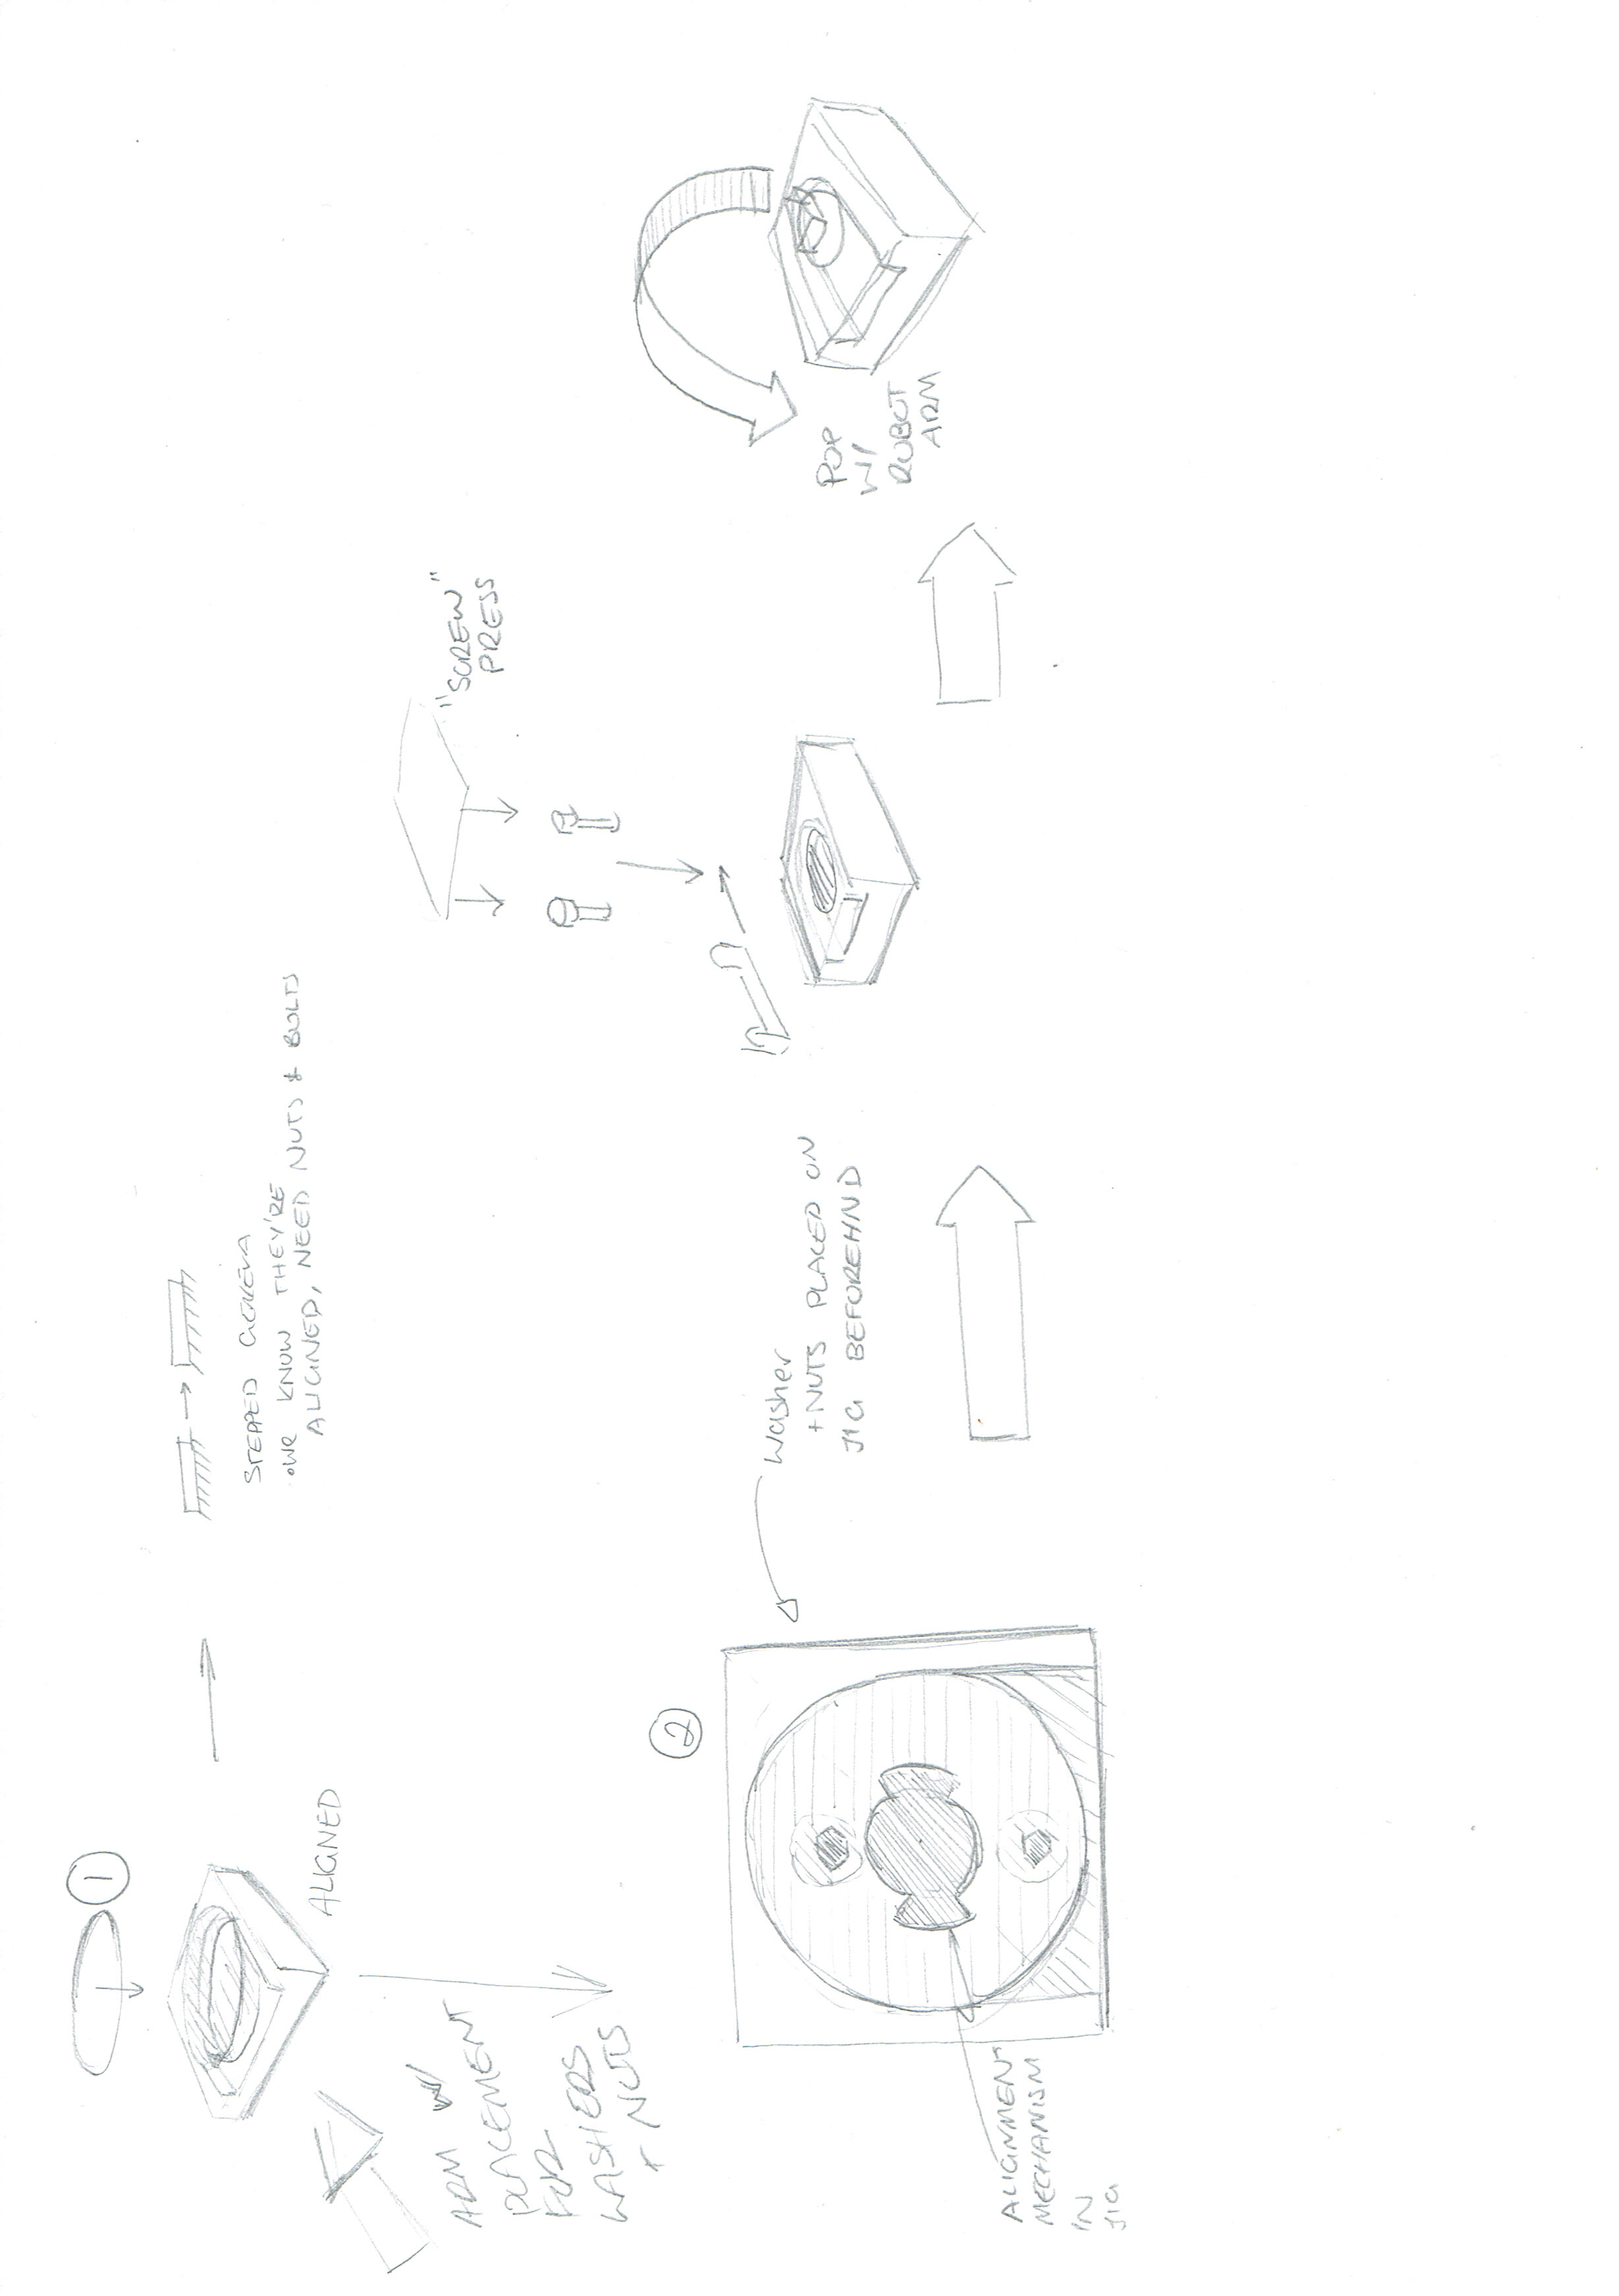 1
ALIGNED
STEPPED GENEVA
•We KNOW THEY'RE
ALIGNED, NEED NUTS & BOLTS
ARM W/
PLACEMENT
FOR
WASHERS
+ NUTS
"SCREW"
PRESS
2
Washer
+NUTS PLACED ON
JIG BEFOREHND
ALIGNMENT
MECHANISM
IN
JIG
POP
W/
ROBOT
ARM